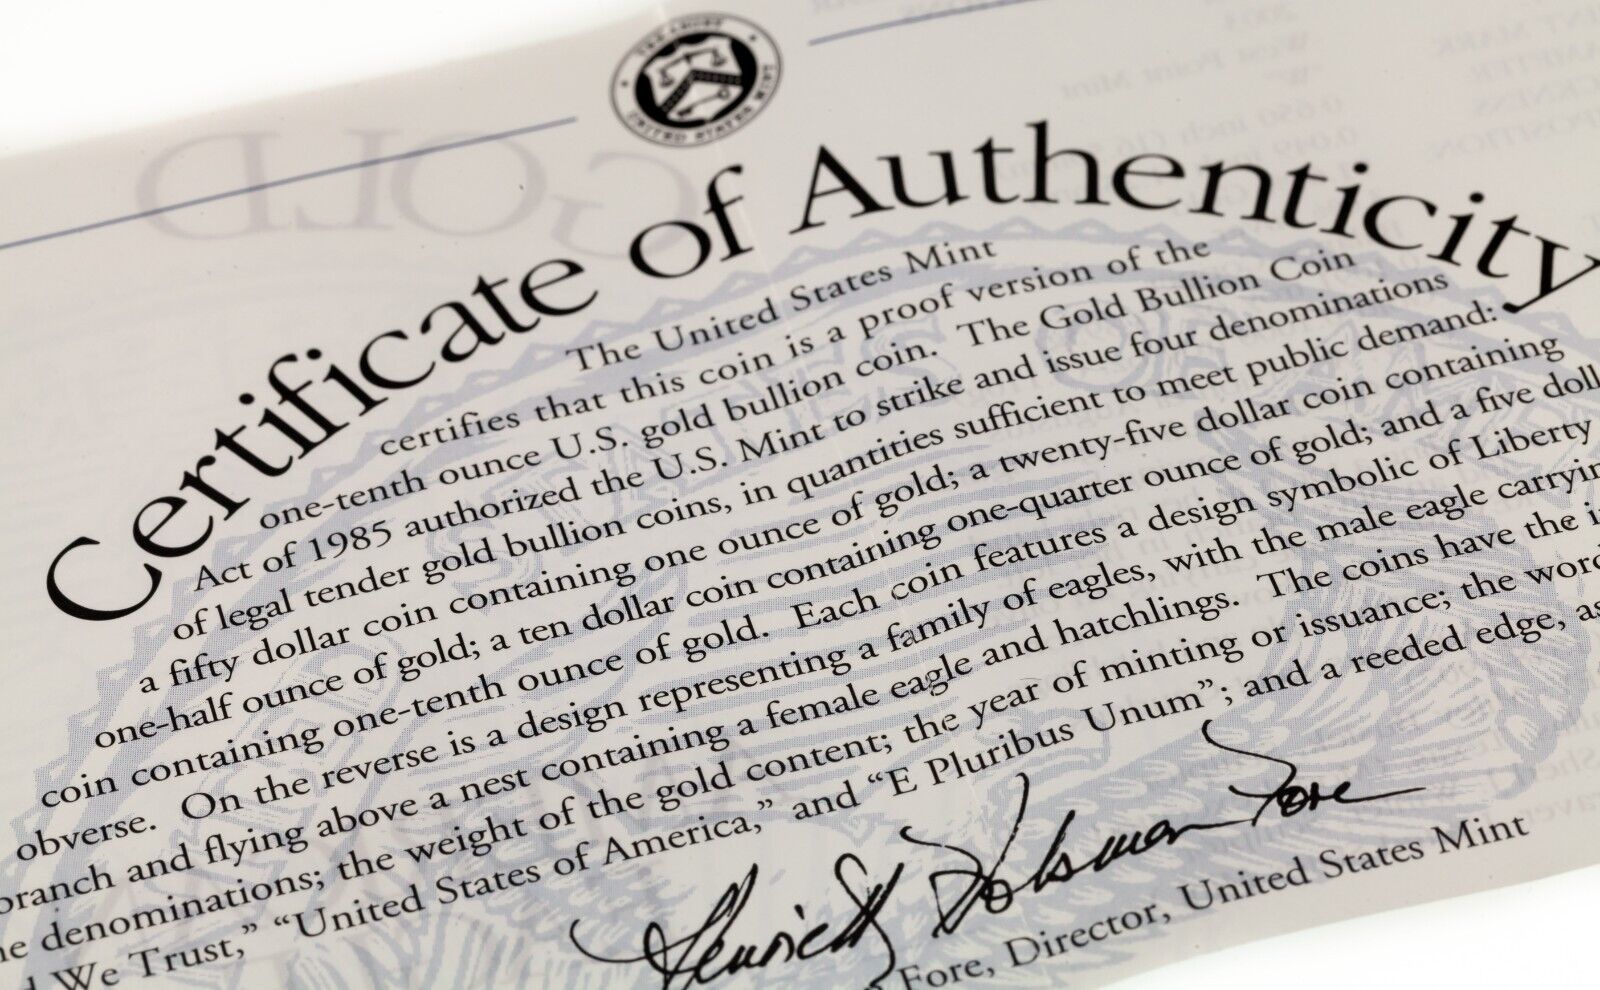 THE TREASURY
UNITED STATES MINT
Certificate of Authenticity
The United States Mint
certifies that this coin is a proof version of the
one-tenth ounce U.S. gold bullion coin. The Gold Bullion Coin
Act of 1985 authorized the U.S. Mint to strike and issue four denominations
of legal tender gold bullion coins, in quantities sufficient to meet public demand:
a fifty dollar coin containing one ounce of gold; a twenty-five dollar coin containing
one-half ounce of gold; a ten dollar coin containing one-quarter ounce of gold; and a five doll
coin containing one-tenth ounce of gold. Each coin features a design symbolic of Liberty
obverse. On the reverse is a design representing a family of eagles, with the male eagle carryin
branch and flying above a nest containing a female eagle and hatchlings. The coins have the i
he denominations; the weight of the gold content; the year of minting or issuance; the word
d We Trust,” “United States of America,” and “E Pluribus Unum”; and a reeded edge, as
Henrietta Holsman Fore
Fore, Director, United States Mint
GOLD
West Point Mint